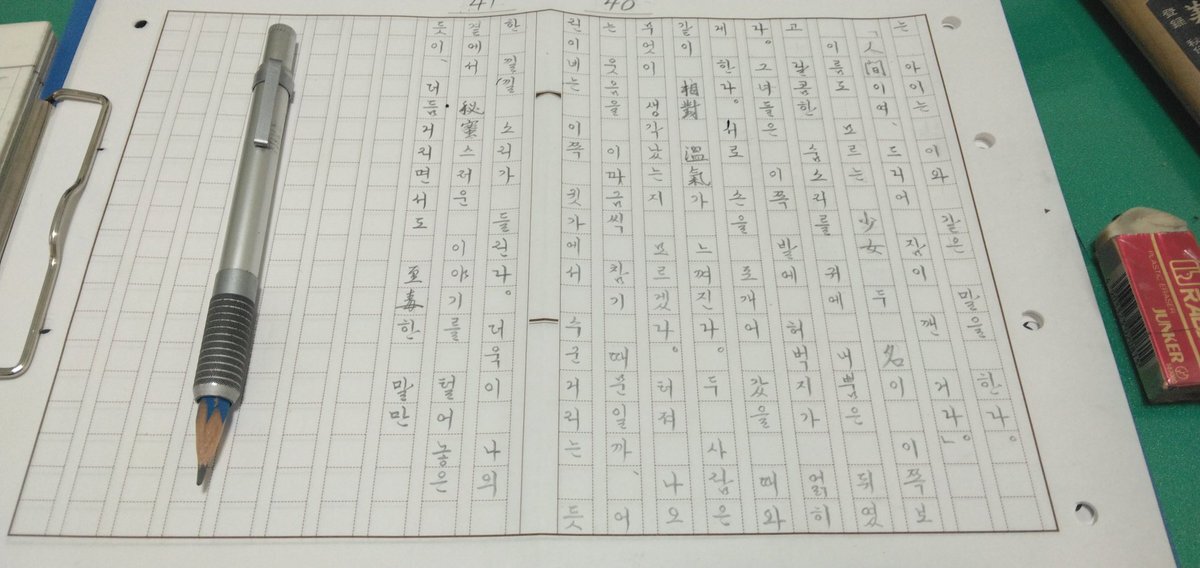 40
는 아이는 이와 같은 말을 한다。
「人間이여、드디어 잠이 깬 거라」。
이름도 모르는 少女 두 名이 이쪽 보
고 달콤한 숨소리를 귀에 내뿜은 뒤였
다。그녀들은 이쪽 발에 허벅지가 얽히
게 한다。서로 손을 포개어 갔을 때와
같이 相對 溫氣가 느껴진다。두 사람은
무엇이 생각났는지 모르겠다。터져 나오
는 웃음을 이따금씩 참기 때문일까、어
린이네는 이쪽 귓가에서 수군거리는 듯
41
한 낄낄 소리가 들린다。더욱이 나의
곁에서 秘密스러운 이야기를 털어놓은
듯이、더듬거리면서도 至毒한 말만
PLASTIC ERASER
JUNKER